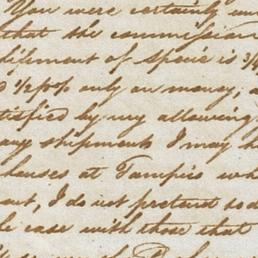 You were certainly un
that the commission
shipment of specie is 3/4
½ p% only on money; a
tisfied by my allowing
any shipments I may h
houses at Tampico wh
out, I do not pretend to d
le case with those that